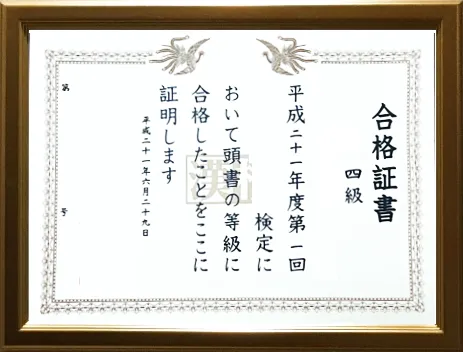 合格証書
四級
平成二十一年度第一回
検定に
おいて頭書の等級に
合格したことをここに
証明します
平成二十一年六月二十九日
第 号
漢